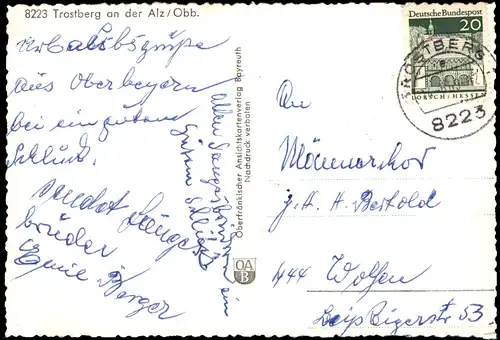 8223 Trostberg an der Alz/Obb.
Urlaubsgrüße
aus Oberbayern
bei ein gutem
Schluck.
Sänges
brüder
Emil Berger
Allen Sangesbrüdern ein
guten Schluck
Oberfränkischer Ansichtskartenverlag Bayreuth
Nachdruck verboten
OA
B
Deutsche Bundespost
20
LORSCH/HESSEN
TROSTBERG
8223
An
Männerchor
z. H. H. Bertold
444 Wolfen
Leipzigerstr 53